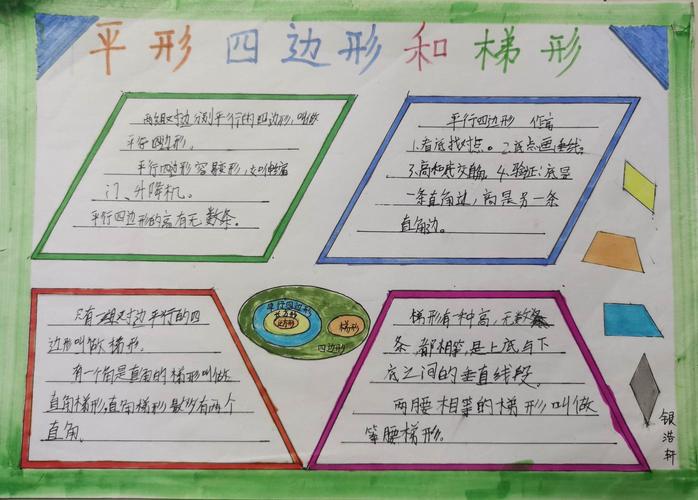 平形四边形和梯形
两组对边分别平行的四边形,叫做
平行四边形。
平行四边形容易变形,如伸缩
门、升降机。
平行四边形的高有无数条。
平行四边形 作高
1.看底找对点。2.过点画垂线。
3.高和底交角。4.验证:底是
一条直角边,高是另一条
直角边。
只有一组对边平行的四
边形叫做梯形。
有一个角是直角的梯形叫做
直角梯形,直角梯形最多有两个
直角。
平行四边形
长方形
正方形
梯形
四边形
梯形有一种高,无数条
条,都相等,是上底与下
底之间的垂直线段。
两腰相等的梯形叫做
等腰梯形。
银浩轩